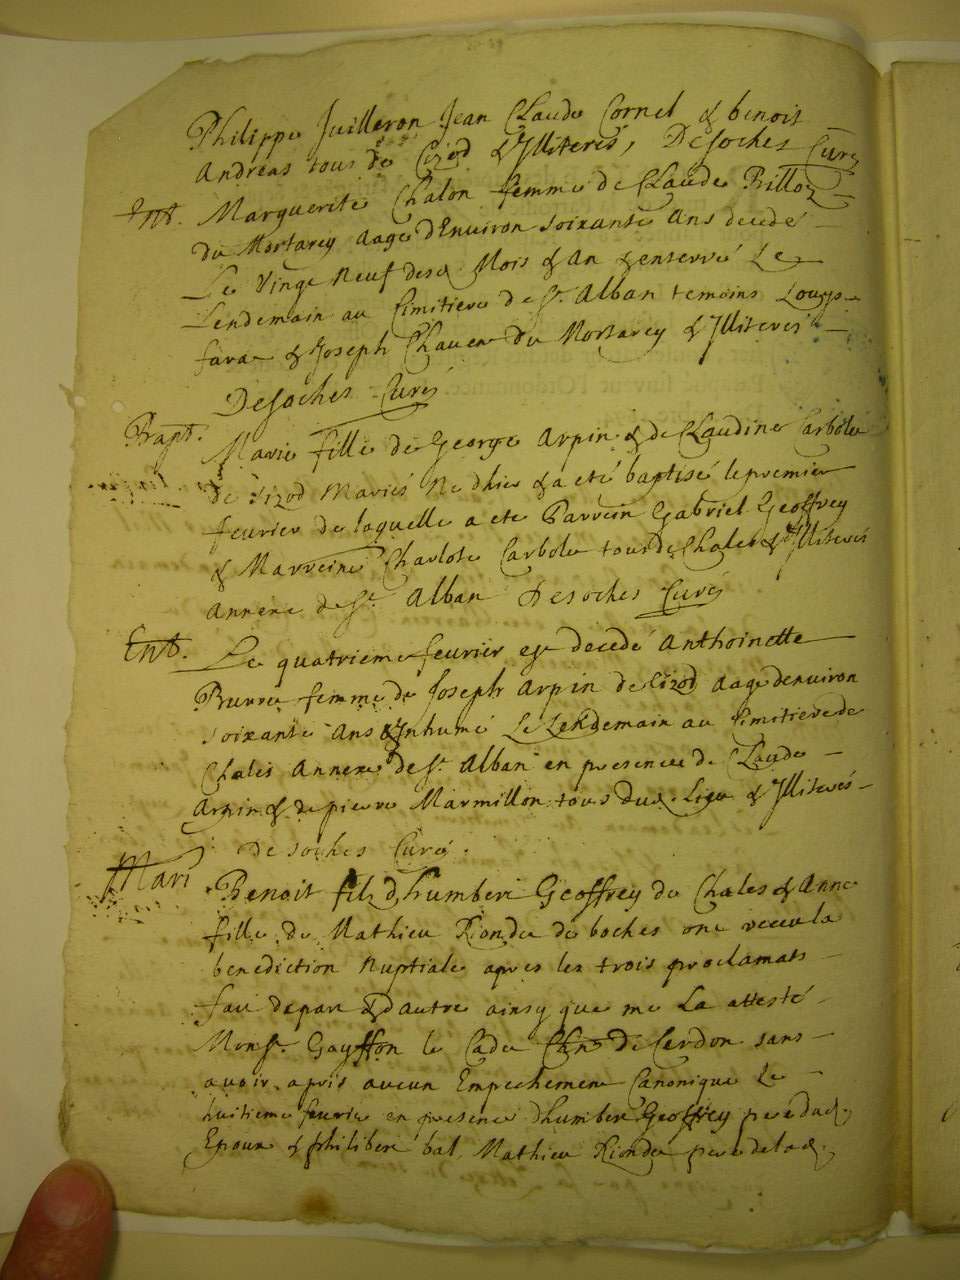 Philippe Juilleron Jean Claude Cornel & benoit
Andreas tous de Cizod & Illiterés, Desoches Curé
Ent. Marguerite Chalon femme de Claude Billoz
du Mortarey aagé d'Environ soixante Ans decedé
Le Vingt Neuf desd Mois & An & enterré Le
Lendemain au Cimitiere de St. Alban temoins Louys
favre & Joseph Chaven du Mortarey & Illiterés
Desoches Curé
Bapt. Marie fille de George Arpin & de Claudine Carbole
de Cizod Mariés Ne d hier & a eté baptisé le premier
feurier de laquelle a ete Parrein Gabriel Geoffrey
& Marreine Charlote Carbole tous de Chales & Illiterés
Annexe de St. Alban Desoches Curé
Ent. Le quatrieme feurier est decedé Anthoinette
Burre femme de Joseph Arpin de Cizod aagé denviron
soixante ans & Inhumé Le Lendemain au Cimitiere de
Chales Annexe de St. Alban en presence de Claude
Arpin & de pierre Marmillon tous dud. Lieu & Illiterés
Desoches Curé.
Mari Benoit fils d humbert Geoffrey de Chales & Anne
fille de Mathieu Riondet de boches ont receu la
benediction Nuptiale apres les trois proclamats
fait depart & dautre ainsy que me La attesté
Monsr. Gayffon le Cadet de Cerdon sans
avoir apris aucun Empechement Canonique Le
huitieme feurie en presence d humbert Geoffrey pere dud.
Epoux & philibert bal, Mathieu Riondet pere de lad.